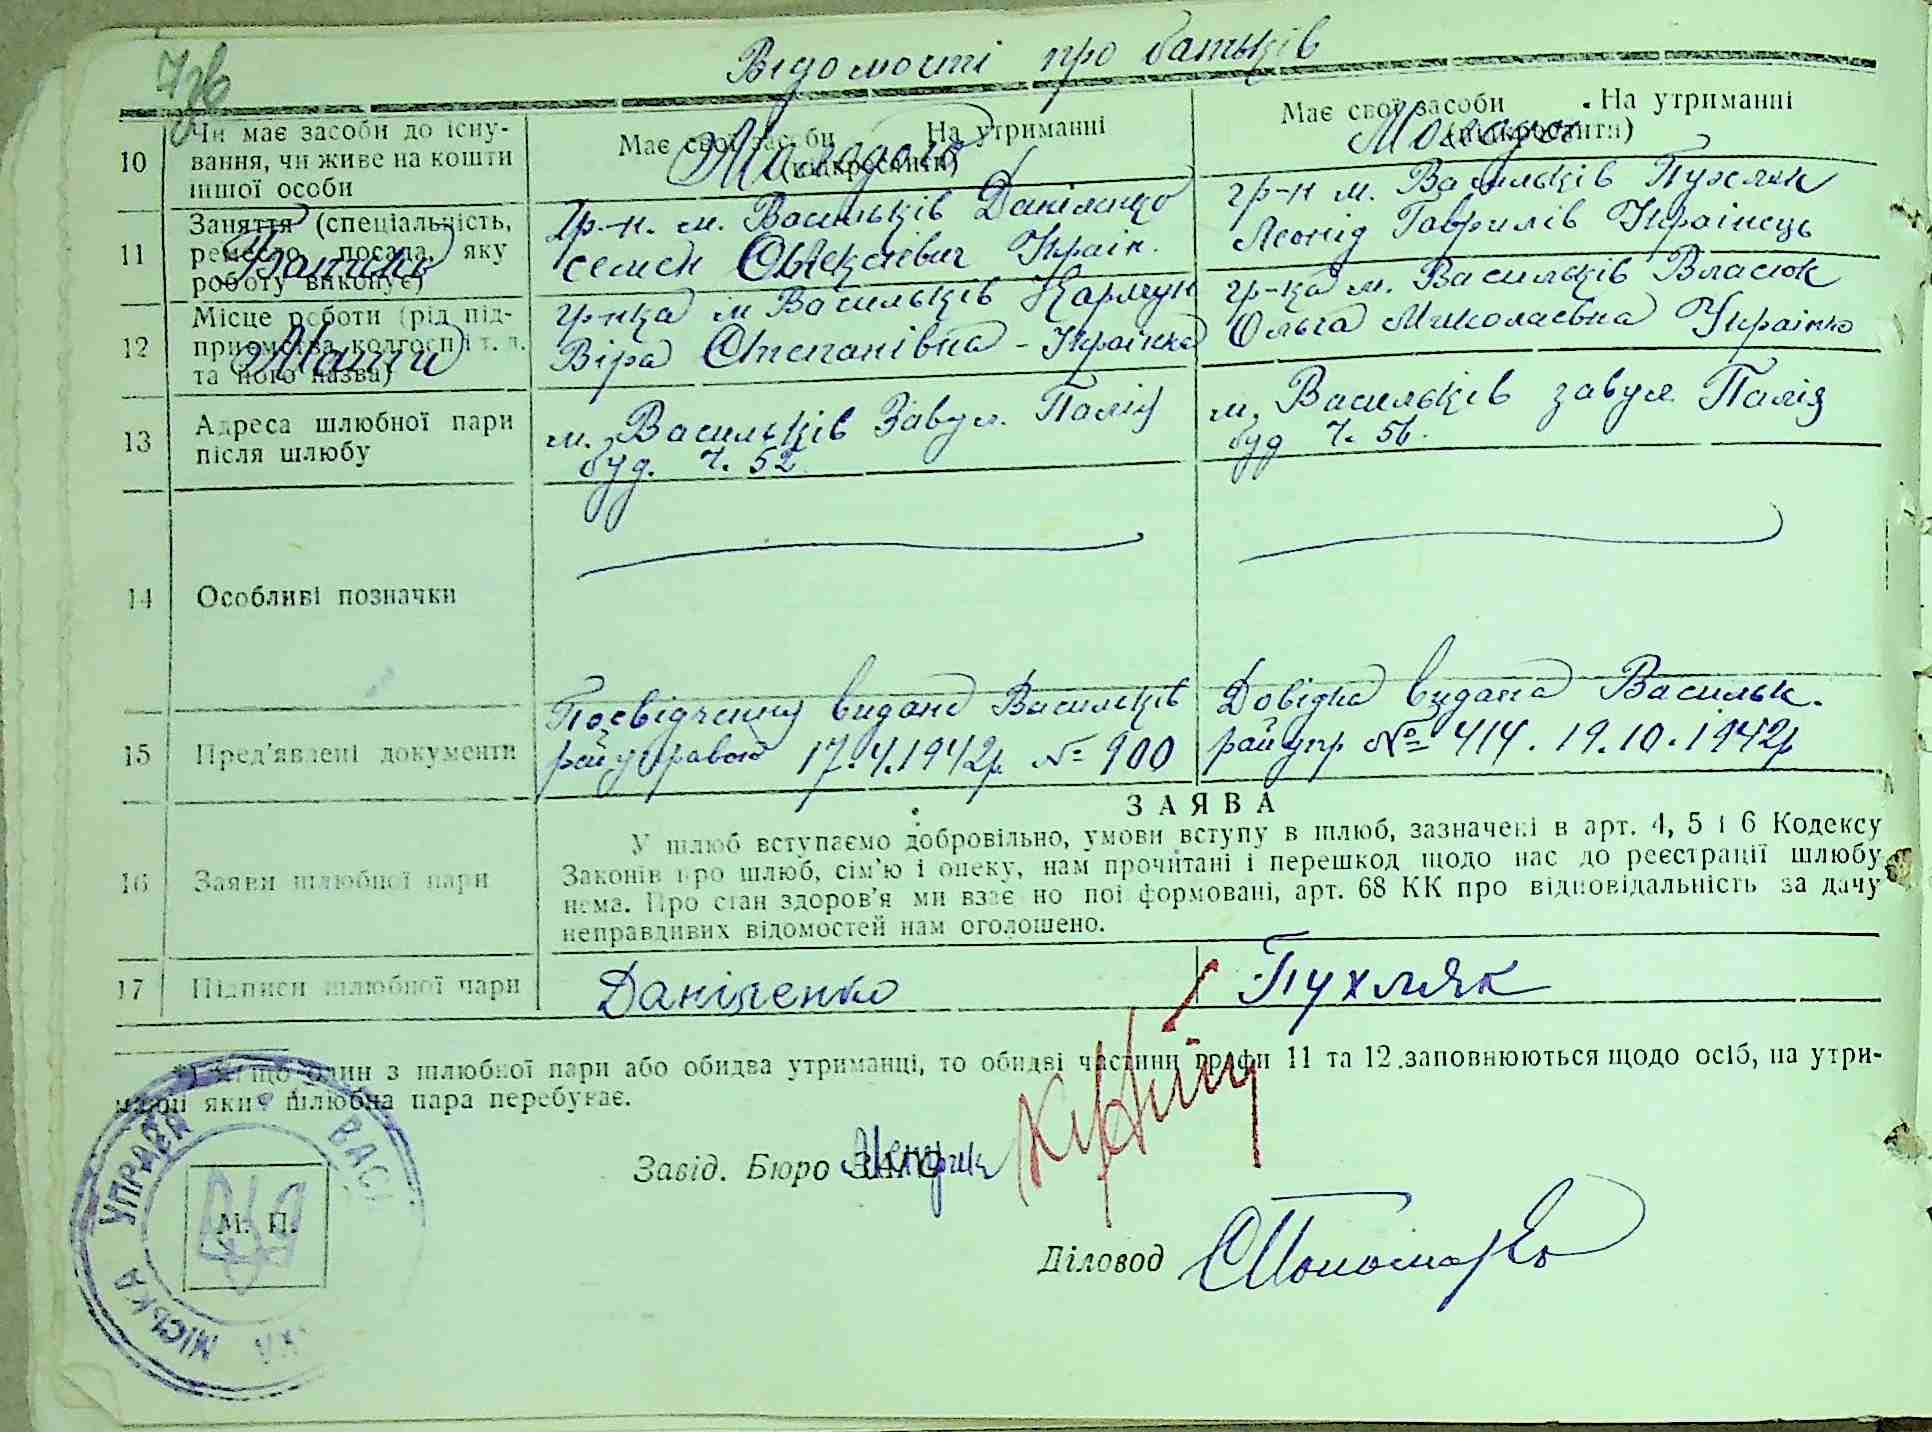 Відомості про батьків
10 Чи має засоби до існу-
вання, чи живе на кошти
іншої особи
Має свої засоби На утриманні
(підкреслити)
Молодого
Має свої засоби На утриманні
(підкреслити)
Молодої
11 Заняття (спеціальність,
ремесло, посада, яку
роботу виконує)
Батько
гр-н. м. Васильків Даніленко
Семен Овіксієвич Україн.
гр-н м. Васильків Пухляк
Леонід Гаврилів Українець
12 Місце роботи (рід під-
приємства, колгосп і т. д.
та його назва)
Мати
гр-нка м Васильків Кармун
Віра Степанівна - Українка
гр-ка м. Васильків Власюк
Ольга Миколаєвна Українка
13 Адреса шлюбної пари
після шлюбу
м. Васильків Завул. Палія
буд. ч. 52.
м. Васильків завул Палія
буд ч. 56.
14 Особливі позначки
15 Пред'явлені документи
Посвідчення видане Васильків
райуправою 17.4.1942р. № 900
Довідка видана Васильк.
райупр № 414. 19.10.1942р
16 Заяви шлюбної пари
ЗАЯВА
У шлюб вступаємо добровільно, умови вступу в шлюб, зазначені в арт. 4, 5 і 6 Кодексу
Законів про шлюб, сім'ю і опеку, нам прочитані і перешкод щодо нас до реєстрації шлюбу
нема. Про стан здоров'я ми взаємно поінформовані, арт. 68 КК про відповідальність за дачу
неправдивих відомостей нам оголошено.
17 Підписи шлюбної пари
Даніленко
Пухляк
*) Якщо один з шлюбної пари або обидва утриманці, то обидві частини графи 11 та 12 заповнюються щодо осіб, на утри-
манні яких шлюбна пара перебуває.
Завід. Бюро ЗАГС
М. П.
МІСЬКА УПРАВА
Діловод